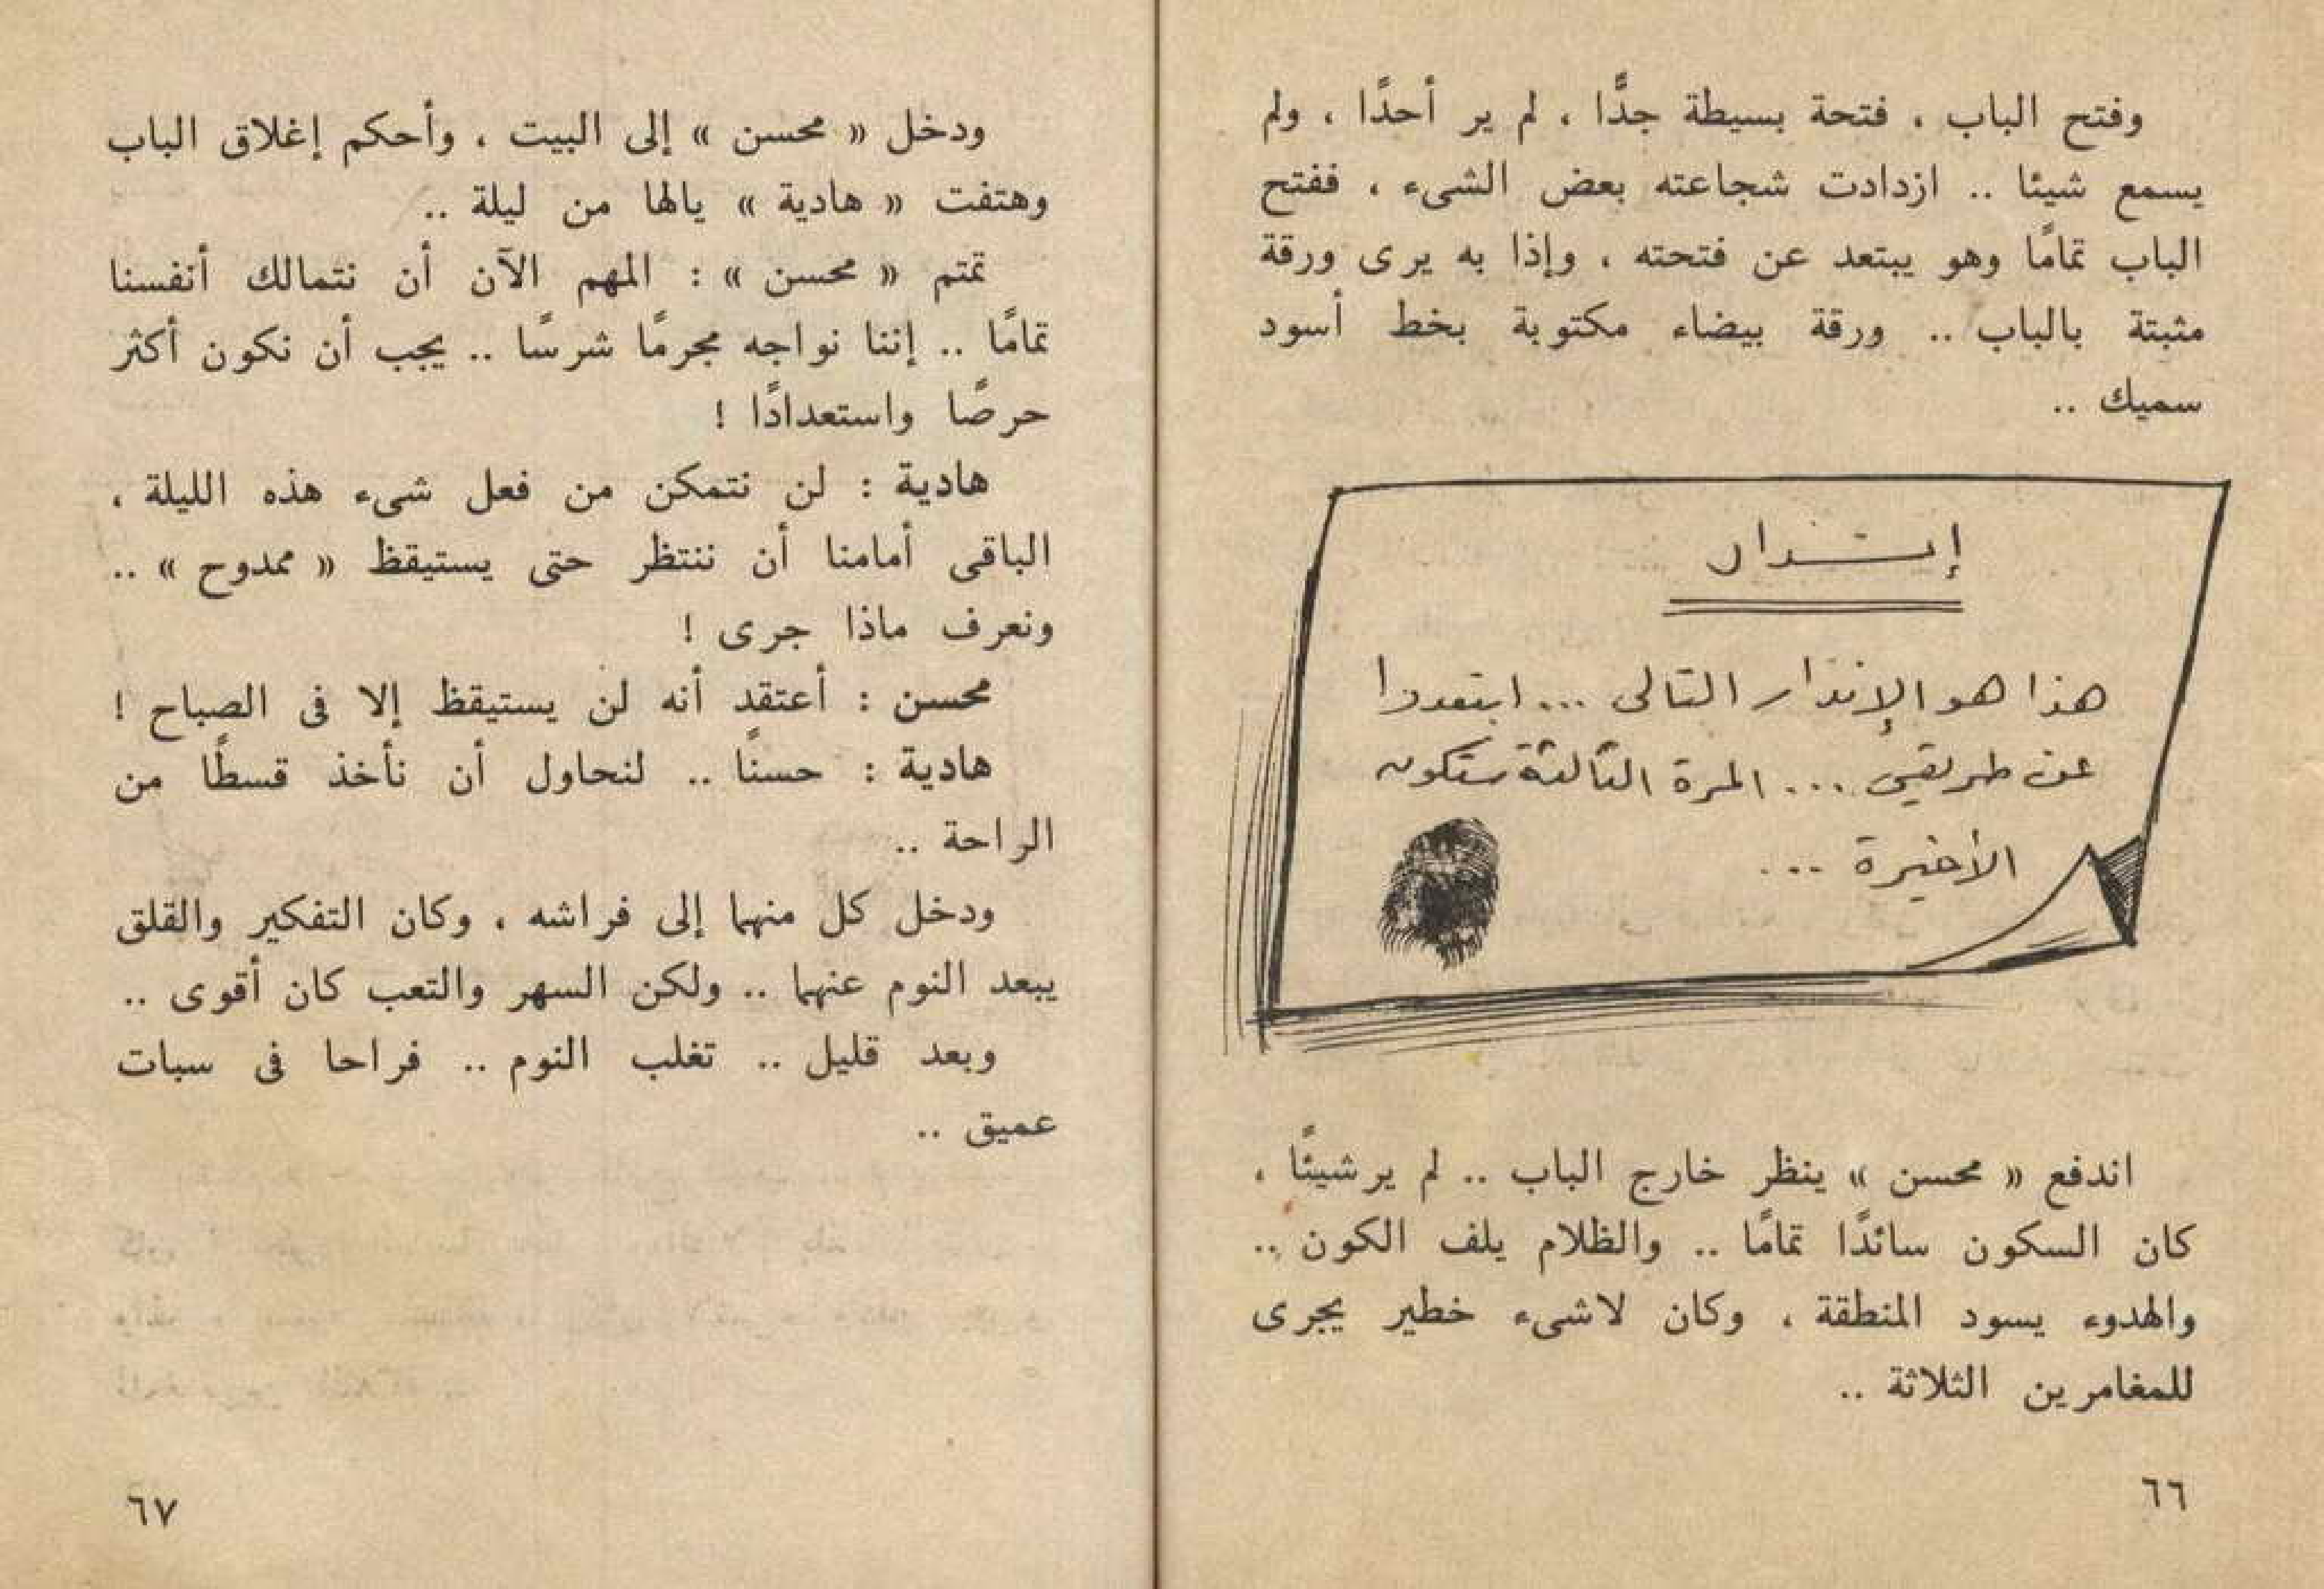 وفتح الباب ، فتحة بسيطة جدًّا ، لم ير أحدًا ، ولم
يسمع شيئا .. ازدادت شجاعته بعض الشىء ، ففتح
الباب تمامًا وهو يبتعد عن فتحته ، وإذا به يرى ورقة
مثبتة بالباب .. ورقة بيضاء مكتوبة بخط أسود
سميك ..
إنذار
هذا هو الإنذار التالى ... ابتعدوا
عن طريقى ... المرة الثالثة ستكون
الأخيرة ...
اندفع « محسن » ينظر خارج الباب .. لم ير شيئًا ،
كان السكون سائدًا تمامًا .. والظلام يلف الكون ..
والهدوء يسود المنطقة ، وكان لاشىء خطير يجرى
للمغامرين الثلاثة ..
٦٦
ودخل « محسن » إلى البيت ، وأحكم إغلاق الباب
وهتفت « هادية » يالها من ليلة ..
تمتم « محسن » : المهم الآن أن نتمالك أنفسنا
تمامًا .. إننا نواجه مجرمًا شرسًا .. يجب أن نكون أكثر
حرصًا واستعدادًا !
هادية : لن نتمكن من فعل شىء هذه الليلة ،
الباقى أمامنا أن ننتظر حتى يستيقظ « ممدوح » ..
ونعرف ماذا جرى !
محسن : أعتقد أنه لن يستيقظ إلا فى الصباح !
هادية : حسنًا .. لنحاول أن نأخذ قسطًا من
الراحة ..
ودخل كل منهما إلى فراشه ، وكان التفكير والقلق
يبعد النوم عنهما .. ولكن السهر والتعب كان أقوى ..
وبعد قليل .. تغلب النوم .. فراحا فى سبات
عميق ..
٦٧